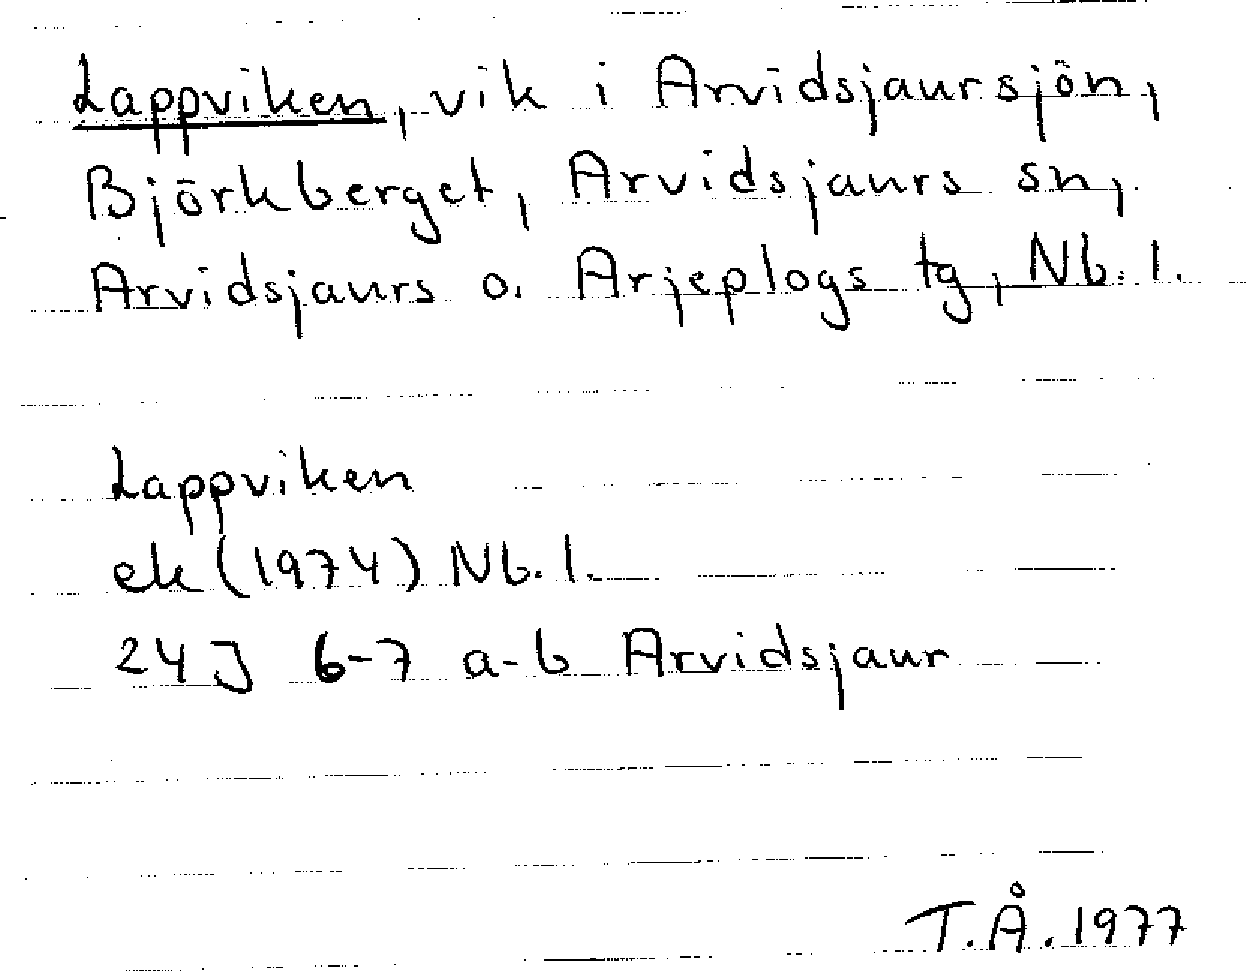 Lappviken, vik i Arvidsjaursjön,
Björkberget, Arvidsjaurs sn,
Arvidsjaurs o. Arjeplogs tg, Nb. l.
Lappviken
ek (1974) Nb. l.
24J 6-7 a-b Arvidsjaur
T.Å. 1977